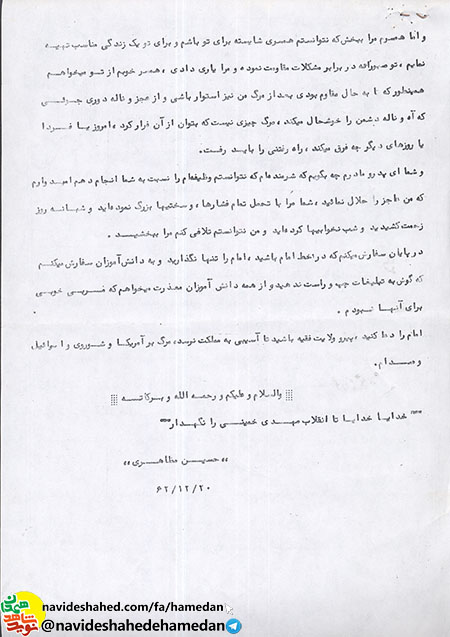 و اما همسرم مرا ببخش که نتوانستم همسری شایسته برای تو باشم و برای تو یک زندگی مناسب تهیه
نمایم ، تو صبورانه در برابر مشکلات مقاومت نموده و مرا یاری دادی ، همسر خوبم از تو میخواهم
همینطور که تا به حال مقاوم بودی بعد از مرگ من نیز استوار باشی و از عجز و ناله دوری جوئی
که آه و ناله دشمن را خوشحال میکند ، مرگ چیزی نیست که بتوان از آن فرار کرد ، امروز یا فردا
یا روزهای دیگر چه فرق میکند ، راه رفتنی را باید رفت.
و شما ای پدر و مادرم چه بگویم که شرمنده‌ام که نتوانستم وظیفه‌ام را نسبت به شما انجام دهم امیدوارم
که من عاجز را حلال نمائید ، شما مرا با تحمل تمام فشارها ، و سختیها بزرگ نموده‌اید و شبانه روز
زحمت کشیدید و شب نخوابیها کرده‌اید و من نتوانستم تلافی کنم مرا ببخشید .
در پایان سفارش میکنم که در خط امام باشید ، امام را تنها نگذارید و به دانش‌آموزان سفارش میکنم
که گوش به تبلیغات چپ و راست ندهید و از همه دانش آموزان معذرت میخواهم که مربی خوبی
برای آنها نبودم .
امام را دعا کنید ، پیرو ولایت فقیه باشید تا آسیبی به مملکت نرسد، مرگ بر آمریکا و شوروی و اسرائیل
و صدام.
والسلام و علیکم و رحمه الله و برکاته
"خدایا خدایا تا انقلاب مهدی خمینی را نگهدار"
،،حسین مظاهری،،
۶۲/۱۲/۲۰
نوید شاهد
همدان
navideshahed.com/fa/hamedan
@navideshahedehamedan